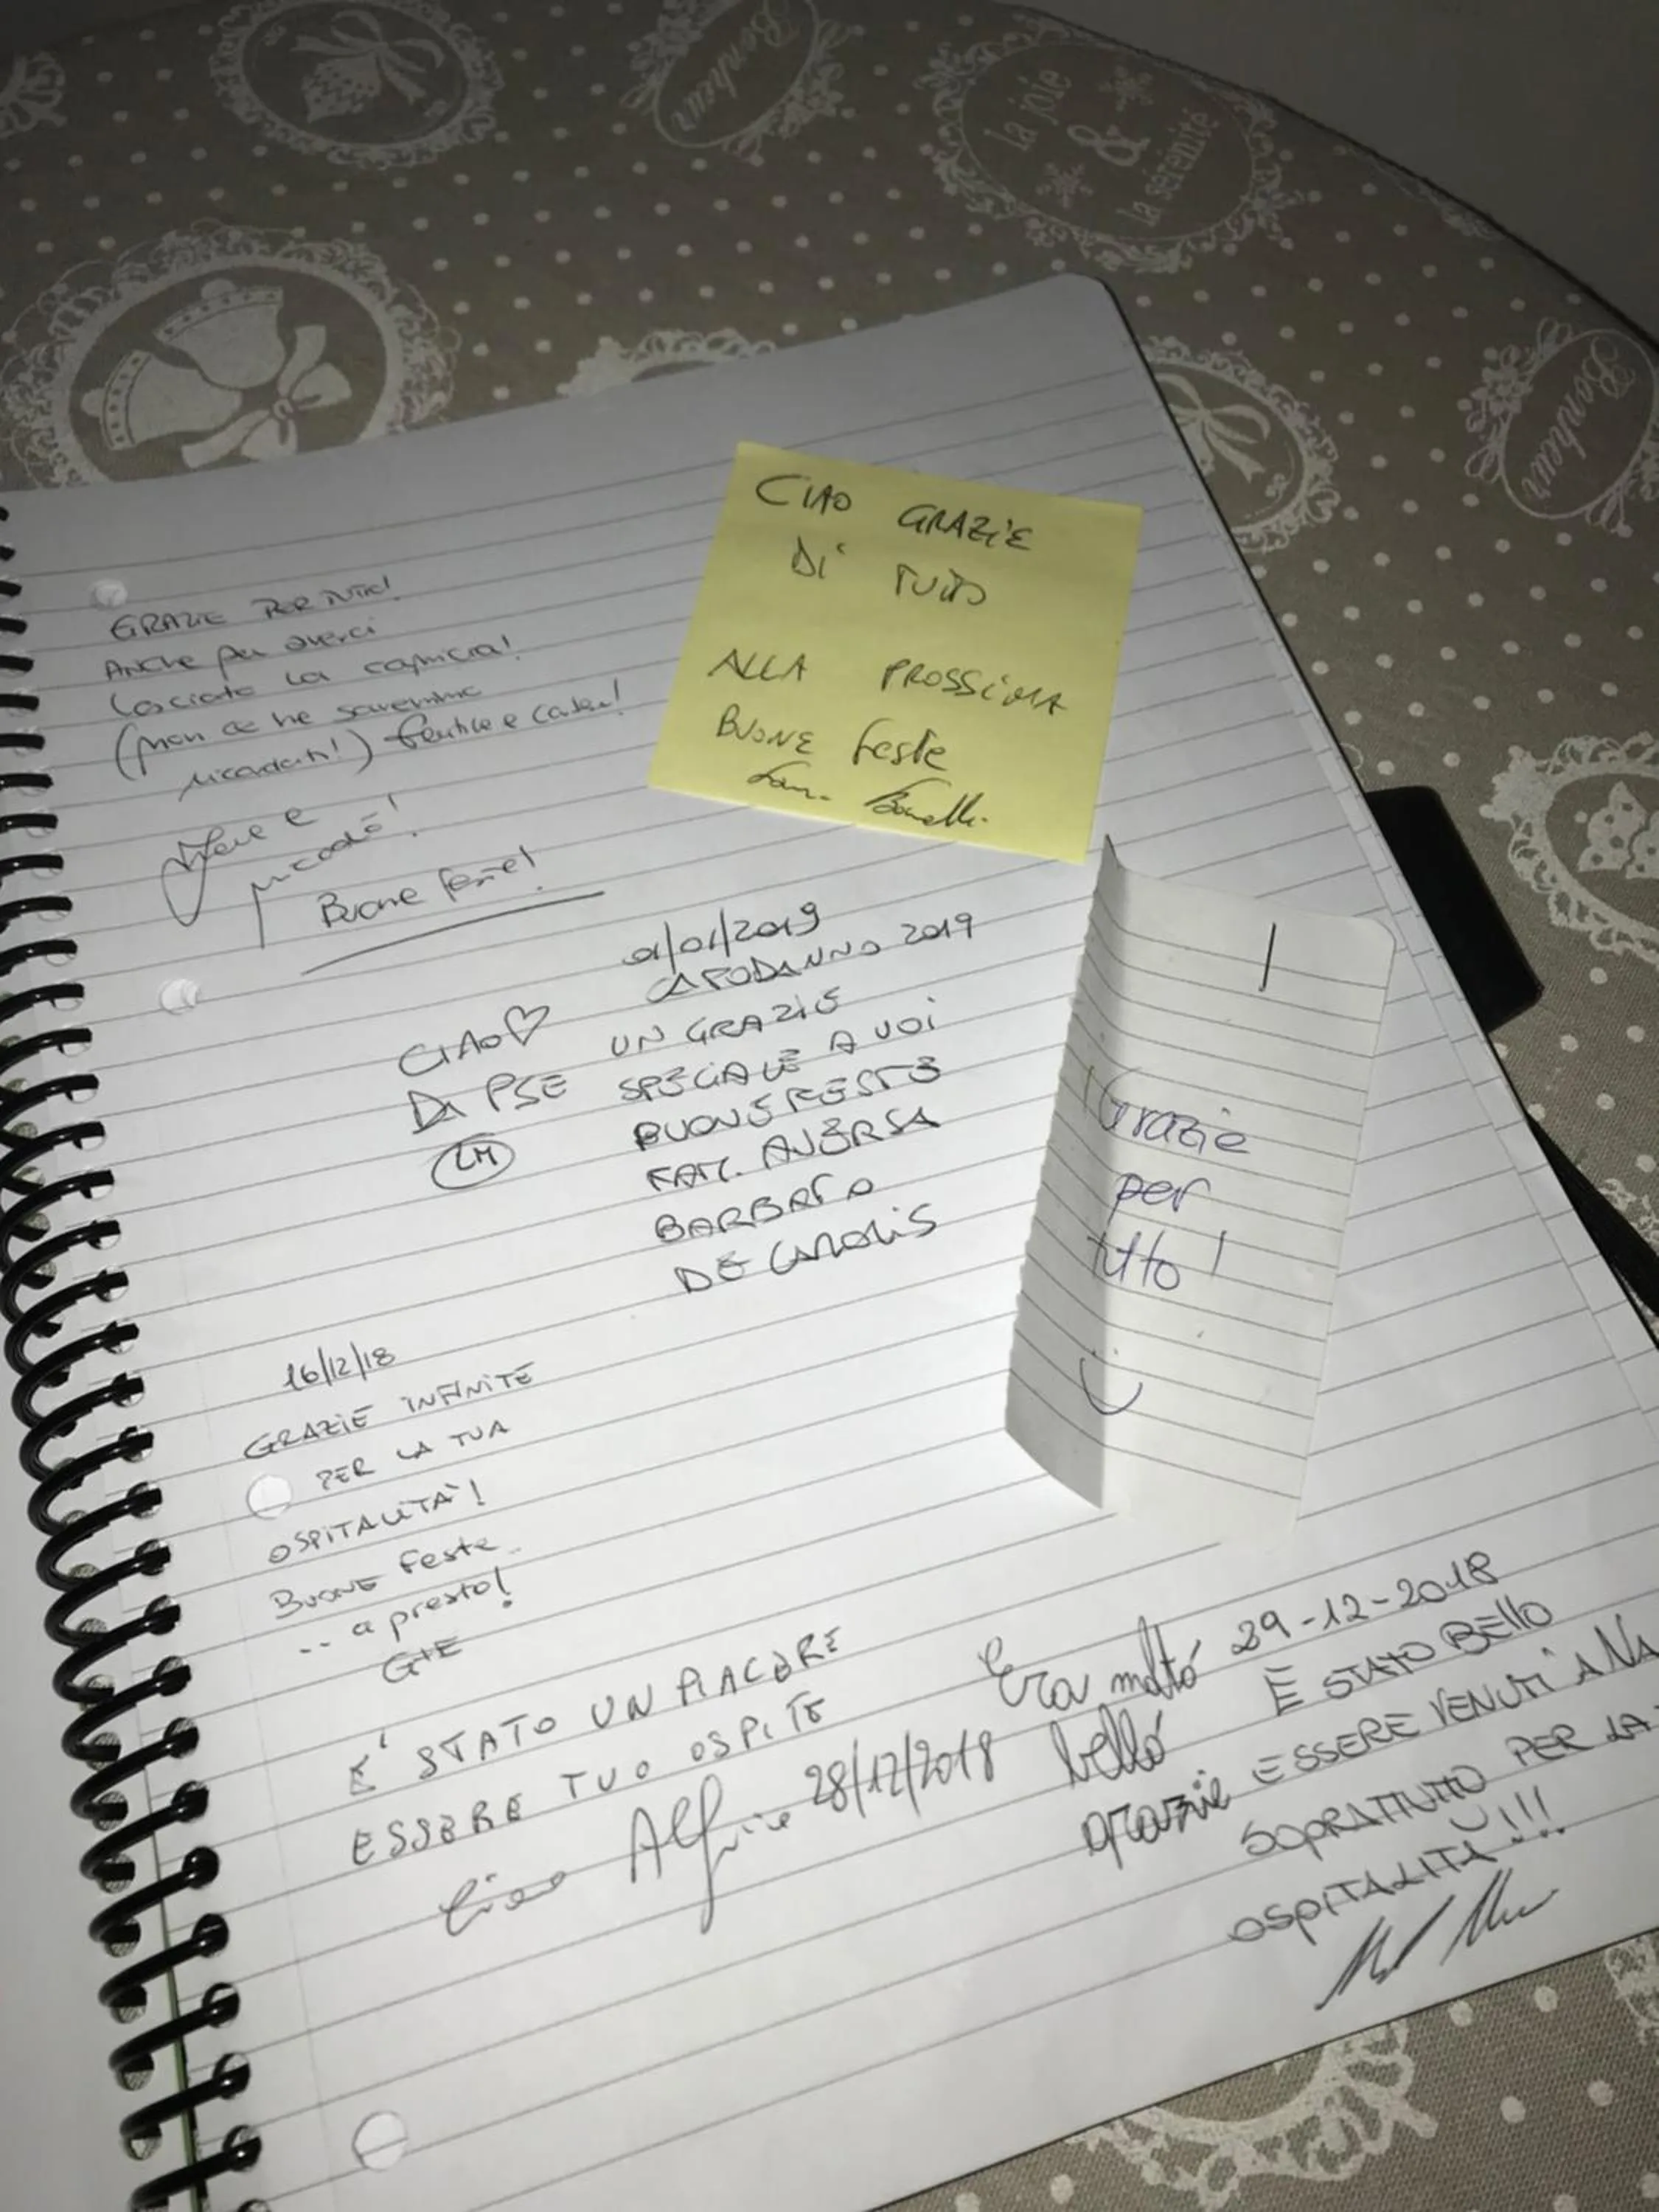 Bonheur
la joie
&
la sérénité
Bonheur
CIAO GRAZIE
DI TUTTO
ALLA PROSSIMA
BUONE feste
GRAZIE PER TUTTO!
ANCHE per averci
lasciato la camicia!
(non ce ne saremmo
ricordati!)
Buone feste!
01/01/2019
CAPODANNO 2019
CIAO♡
DA PSE
LM
UN GRAZIE
SPECIALE A VOI
BUONE FESTE
FAM. AVERSA
BARBATO
DE CAROLIS
Grazie
per
tutto!
16/12/18
GRAZIE INFINITE
PER LA TUA
OSPITALITÀ!
BUONE Feste..
.. a presto!
G+E
E' STATO UN PIACERE
ESSERE TUO OSPITE
Ciao 28/12/2018
Era molto
bello
grazie
29-12-2018
È STATO BELLO
ESSERE VENUTI A NA
SOPRATTUTTO PER LA
OSPITALITÀ!!!